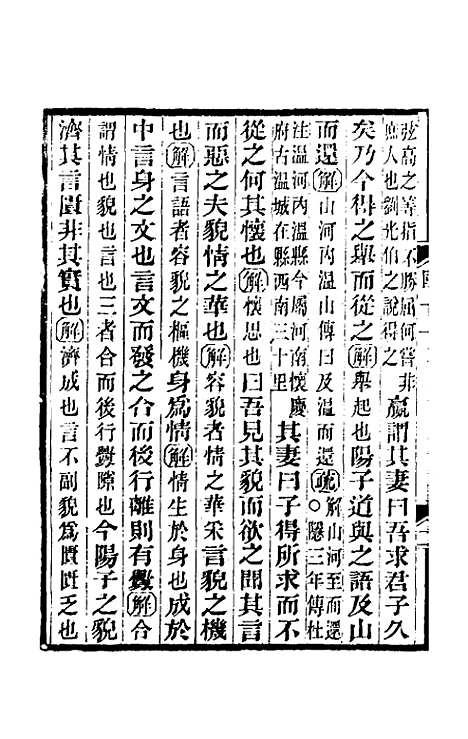 弦高之等指不勝屈何嘗非
庶人也劉光伯之說得之
嬴謂其妻曰吾求君子久
矣乃今得之舉而從之解舉起也陽子道與之語及山
而還解山河內溫山傳曰及溫而還疏解山河至而還
○隱三年傳杜
注溫河內溫縣今屬河南懷慶
府古溫城在縣西南三十里
其妻曰子得所求而不
從之何其懷也解懷思也曰吾見其貌而欲之聞其言
而惡之夫貌情之華也解容貌者情之華采言貌之機
也解言語者容貌之樞機身爲情解情生於身也成於
中言身之文也言文而發之合而後行離則有釁解合
謂情也貌也言也三者合而後行釁隙也今陽子之貌
濟其言匱非其實也解濟成也言不副貌爲匱匱乏也